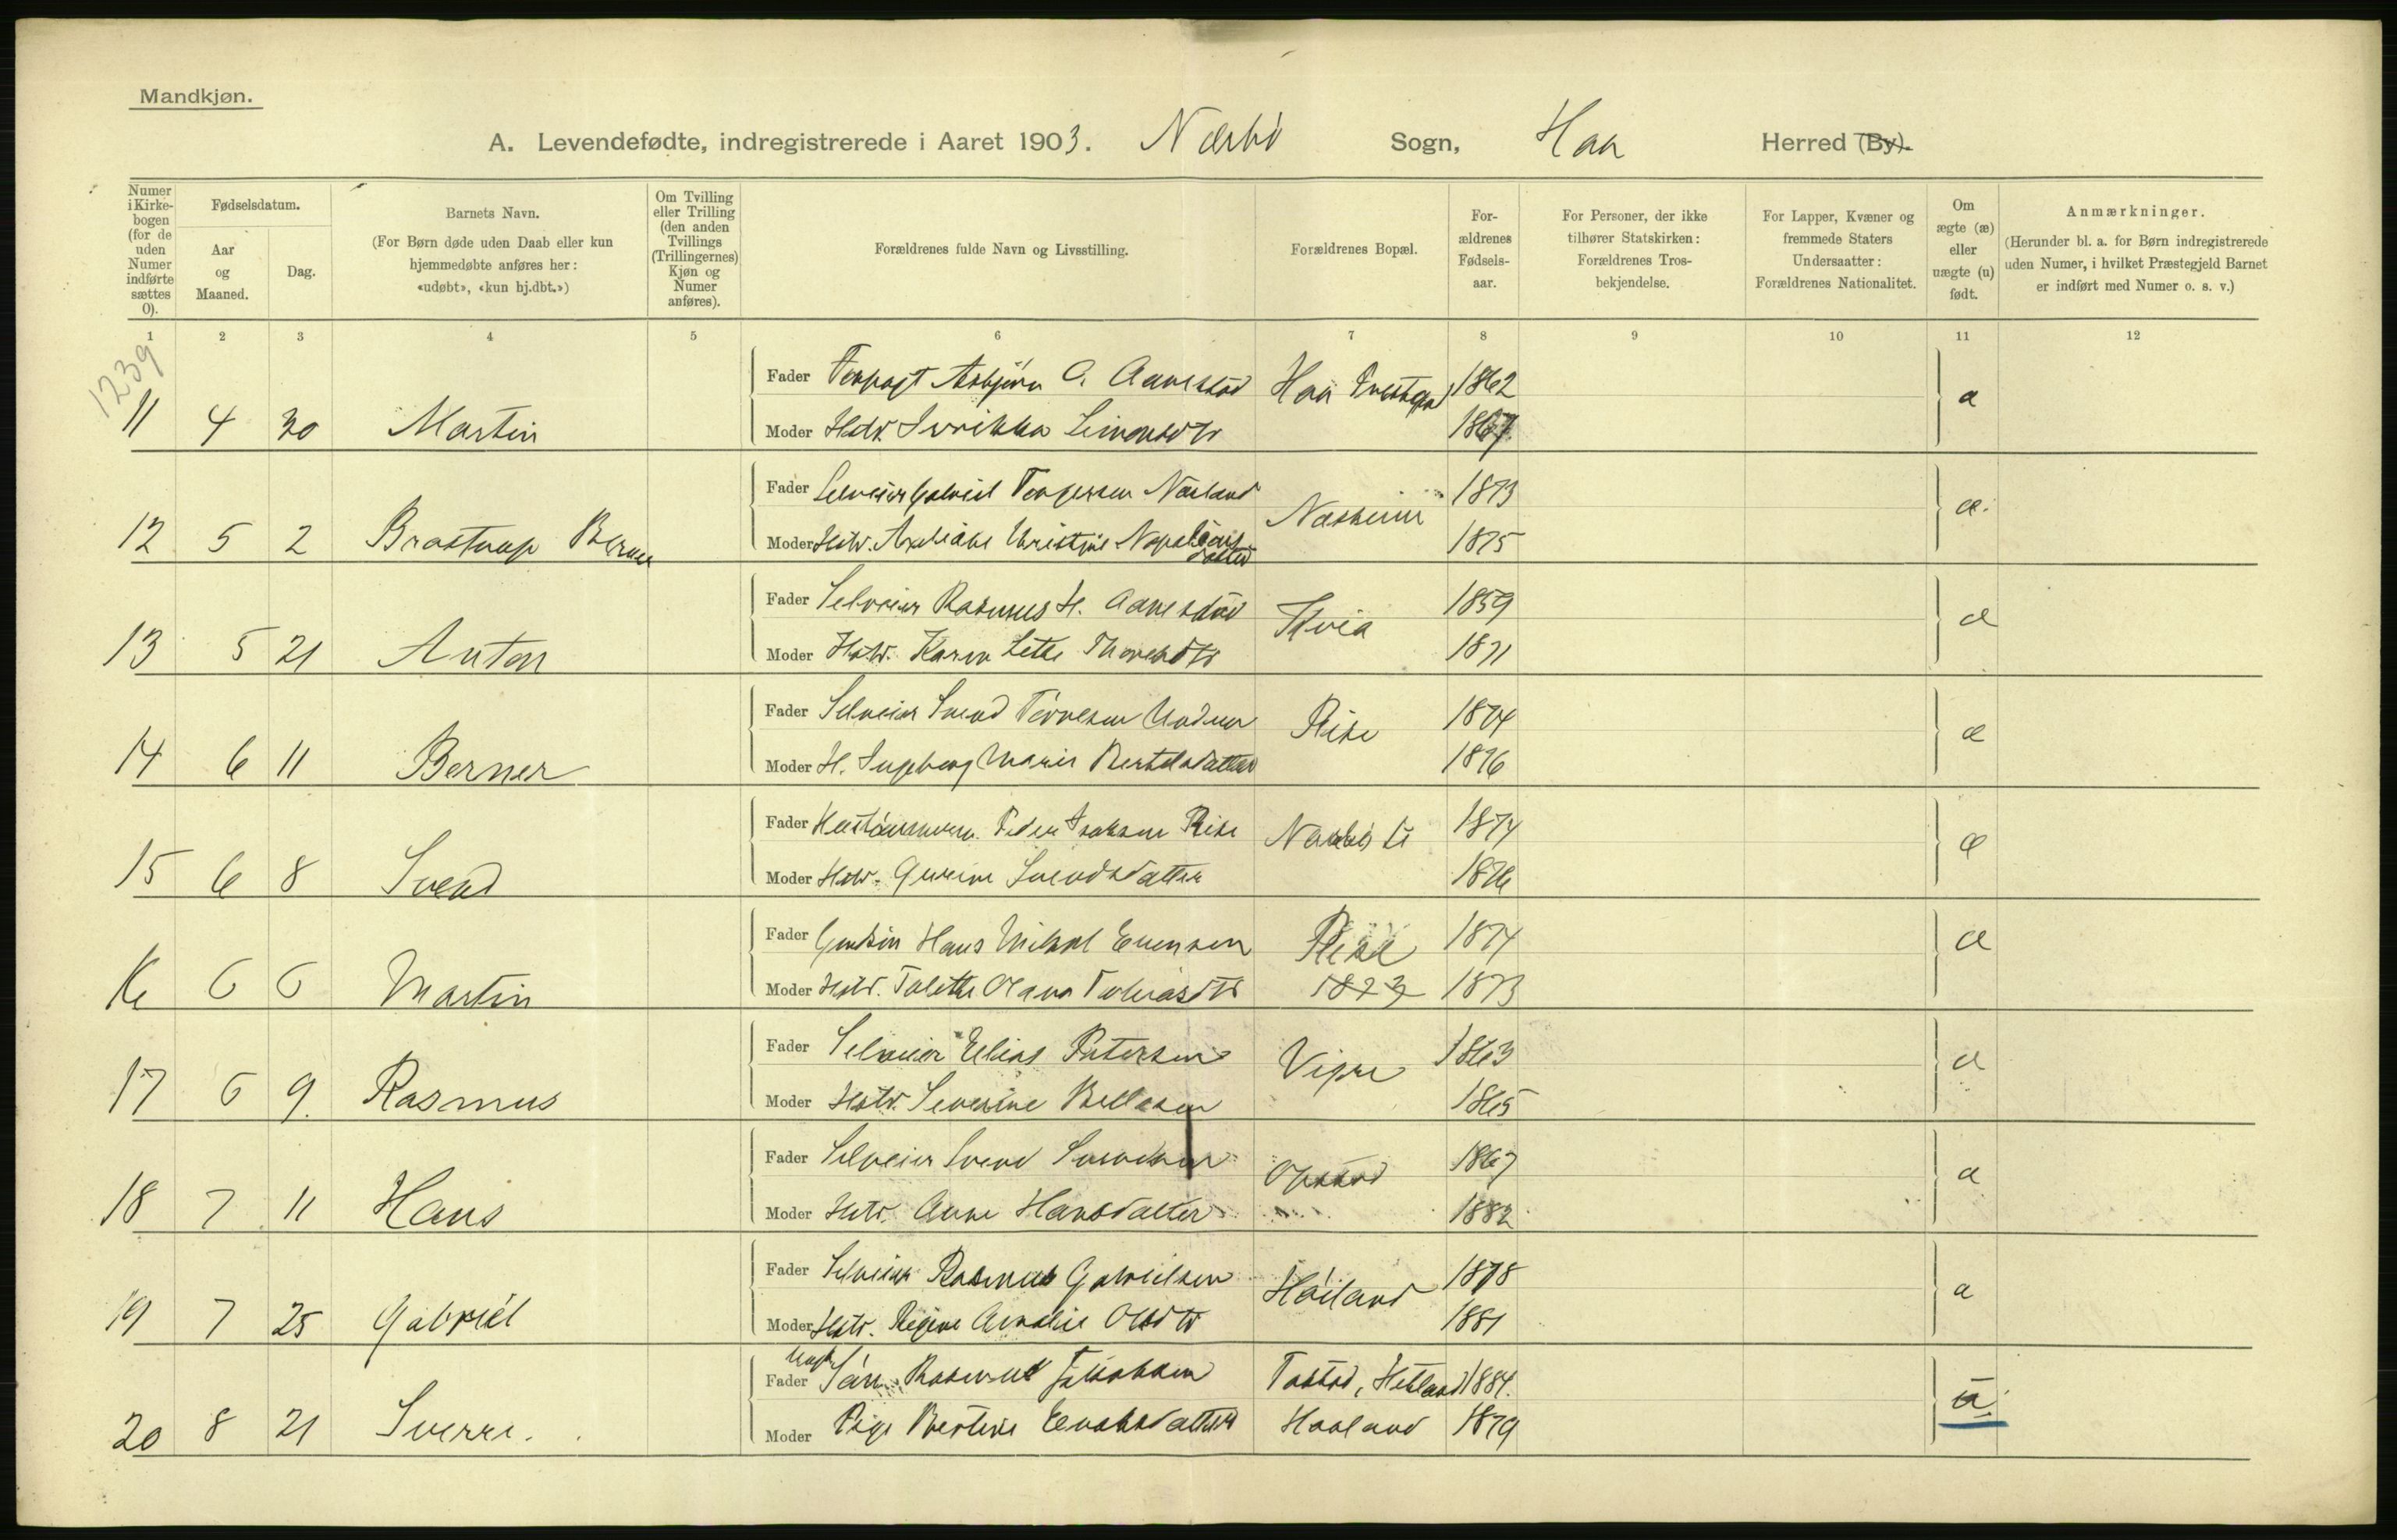 Mandkjøn.
A. Levendefødte, indregistrerede i Aaret 1903. Nærbø Sogn, Haa Herred (By).
Numer i Kirkebogen (for de uden Numer indførte sættes 0).
Fødselsdatum.
Aar og Maaned.
Dag.
Barnets Navn.
(For Børn døde uden Daab eller kun hjemmedøbte anføres her: «udøbt», «kun hj.dbt.»)
Om Tvilling eller Trilling (den anden Tvillings (Trillingernes) Kjøn og Numer anføres).
Forældrenes fulde Navn og Livsstilling.
Forældrenes Bopæl.
Forældrenes Fødselsaar.
For Personer, der ikke tilhører Statskirken: Forældrenes Trosbekjendelse.
For Lapper, Kvæner og fremmede Staters Undersaatter: Forældrenes Nationalitet.
Om ægte (æ) eller uægte (u) født.
Anmærkninger.
(Herunder bl. a. for Børn indregistrerede uden Numer, i hvilket Præstegjeld Barnet er indført med Numer o. s. v.)
1 2 3 4 5 6 7 8 9 10 11 12
1239
Fader Asbjørn O. Aanestad Haa 1862 æ
11 4 30 Martin Moder Hstr. Simonsdtr 1867
Fader Selveier Gabriel Torgersen Nærland Næsheim 1873 æ.
12 5 2 Brostrup Berner Moder Hstr. Christine Napoleonsdatter 1875
Fader Selveier Rasmus H. Aanestad Tvia 1859 æ
13 5 21 Anton Moder Hstr. Karen Lethe 1871
Fader Selveier Svend Tønnesen Rise 1874 æ
14 6 11 Berner Moder H. Ingeborg Marie Bertelsdatter 1876
Fader Peder Isaksen Rise Nærbø St 1874 æ
15 6 8 Svend Moder Hstr. Gurine Svendsdatter 1876
Fader Hans Mikal Evensen Rise 1874 æ
16 6 6 Martin Moder Hstr. Talette Olava Tobiasdtr 1873 1873
Fader Selveier Elias Petersen Vigre 1863 æ
17 6 9. Rasmus Moder Hstr. Severine 1865
Fader Selveier Svend Svendsen Opstad 1867 æ
18 7 11 Hans Moder Hstr. Anne Hansdatter 1882
Fader Selveier Rasmus Gabrielsen Høiland 1878 æ
19 7 25 Gabriel Moder Hstr. Regine Amalie Olsdtr 1881
Fader Ungk. Rasmus Jakobsen Tastad, Hetland 1884. u
20 8 21 Sverre. Moder Pige Bertine Enoksdatter Haaland 1879